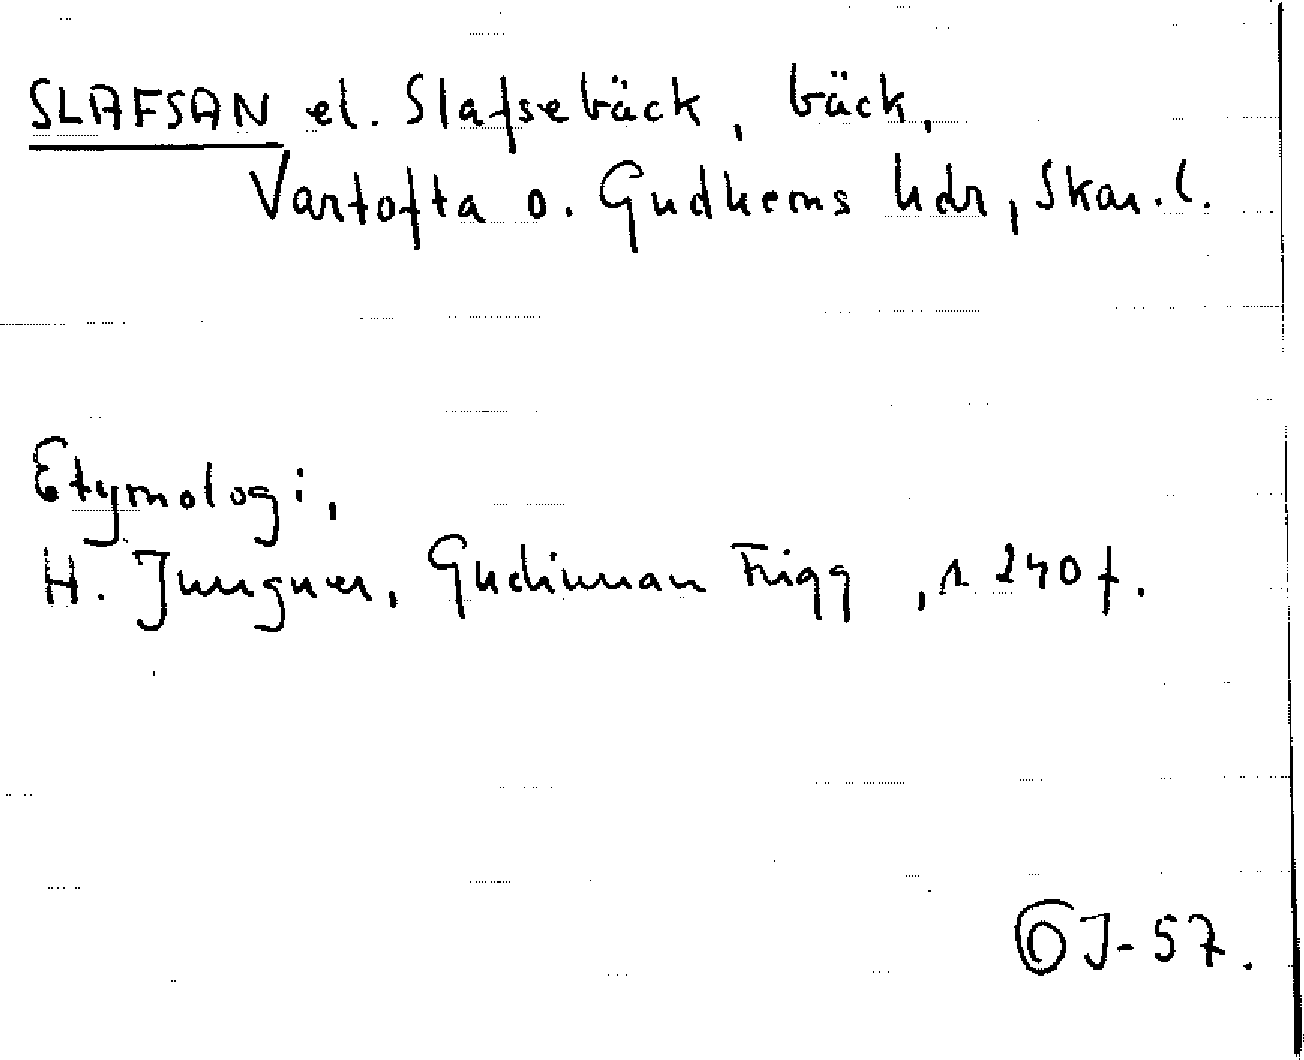 SLAFSAN el. Slafsebäck, bäck,
Vartofta o. Gudhems hdr, Skar. l.
Etymologi,
H. Jungner, Gudinnan Frigg, s 240 f.
GJ-57.